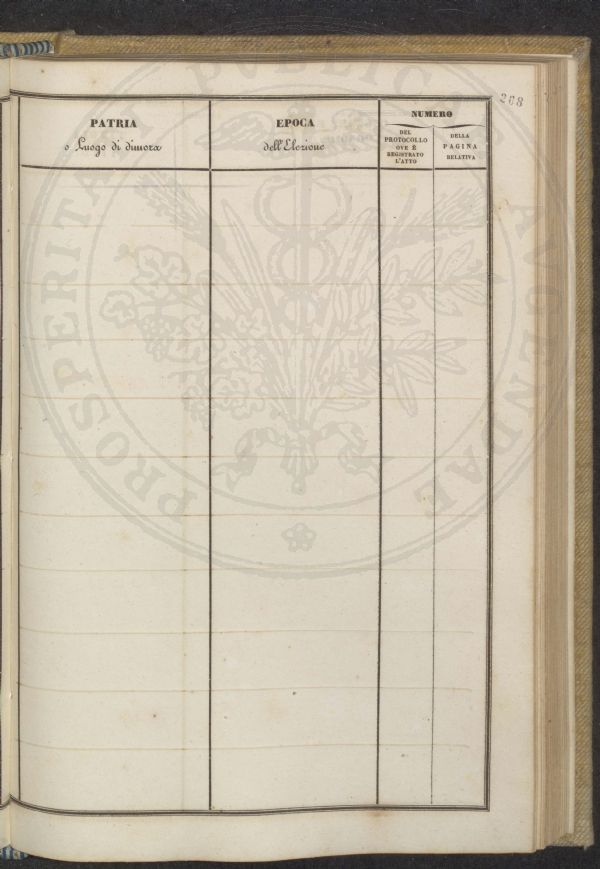 268
PATRIA
o Luogo di dimora
EPOCA
dell'Elezione
NUMERO
DEL
PROTOCOLLO
OVE È
REGISTRATO
L'ATTO
DELLA
PAGINA
RELATIVA
PROSPERITATI PVBLICAE AVGENDAE